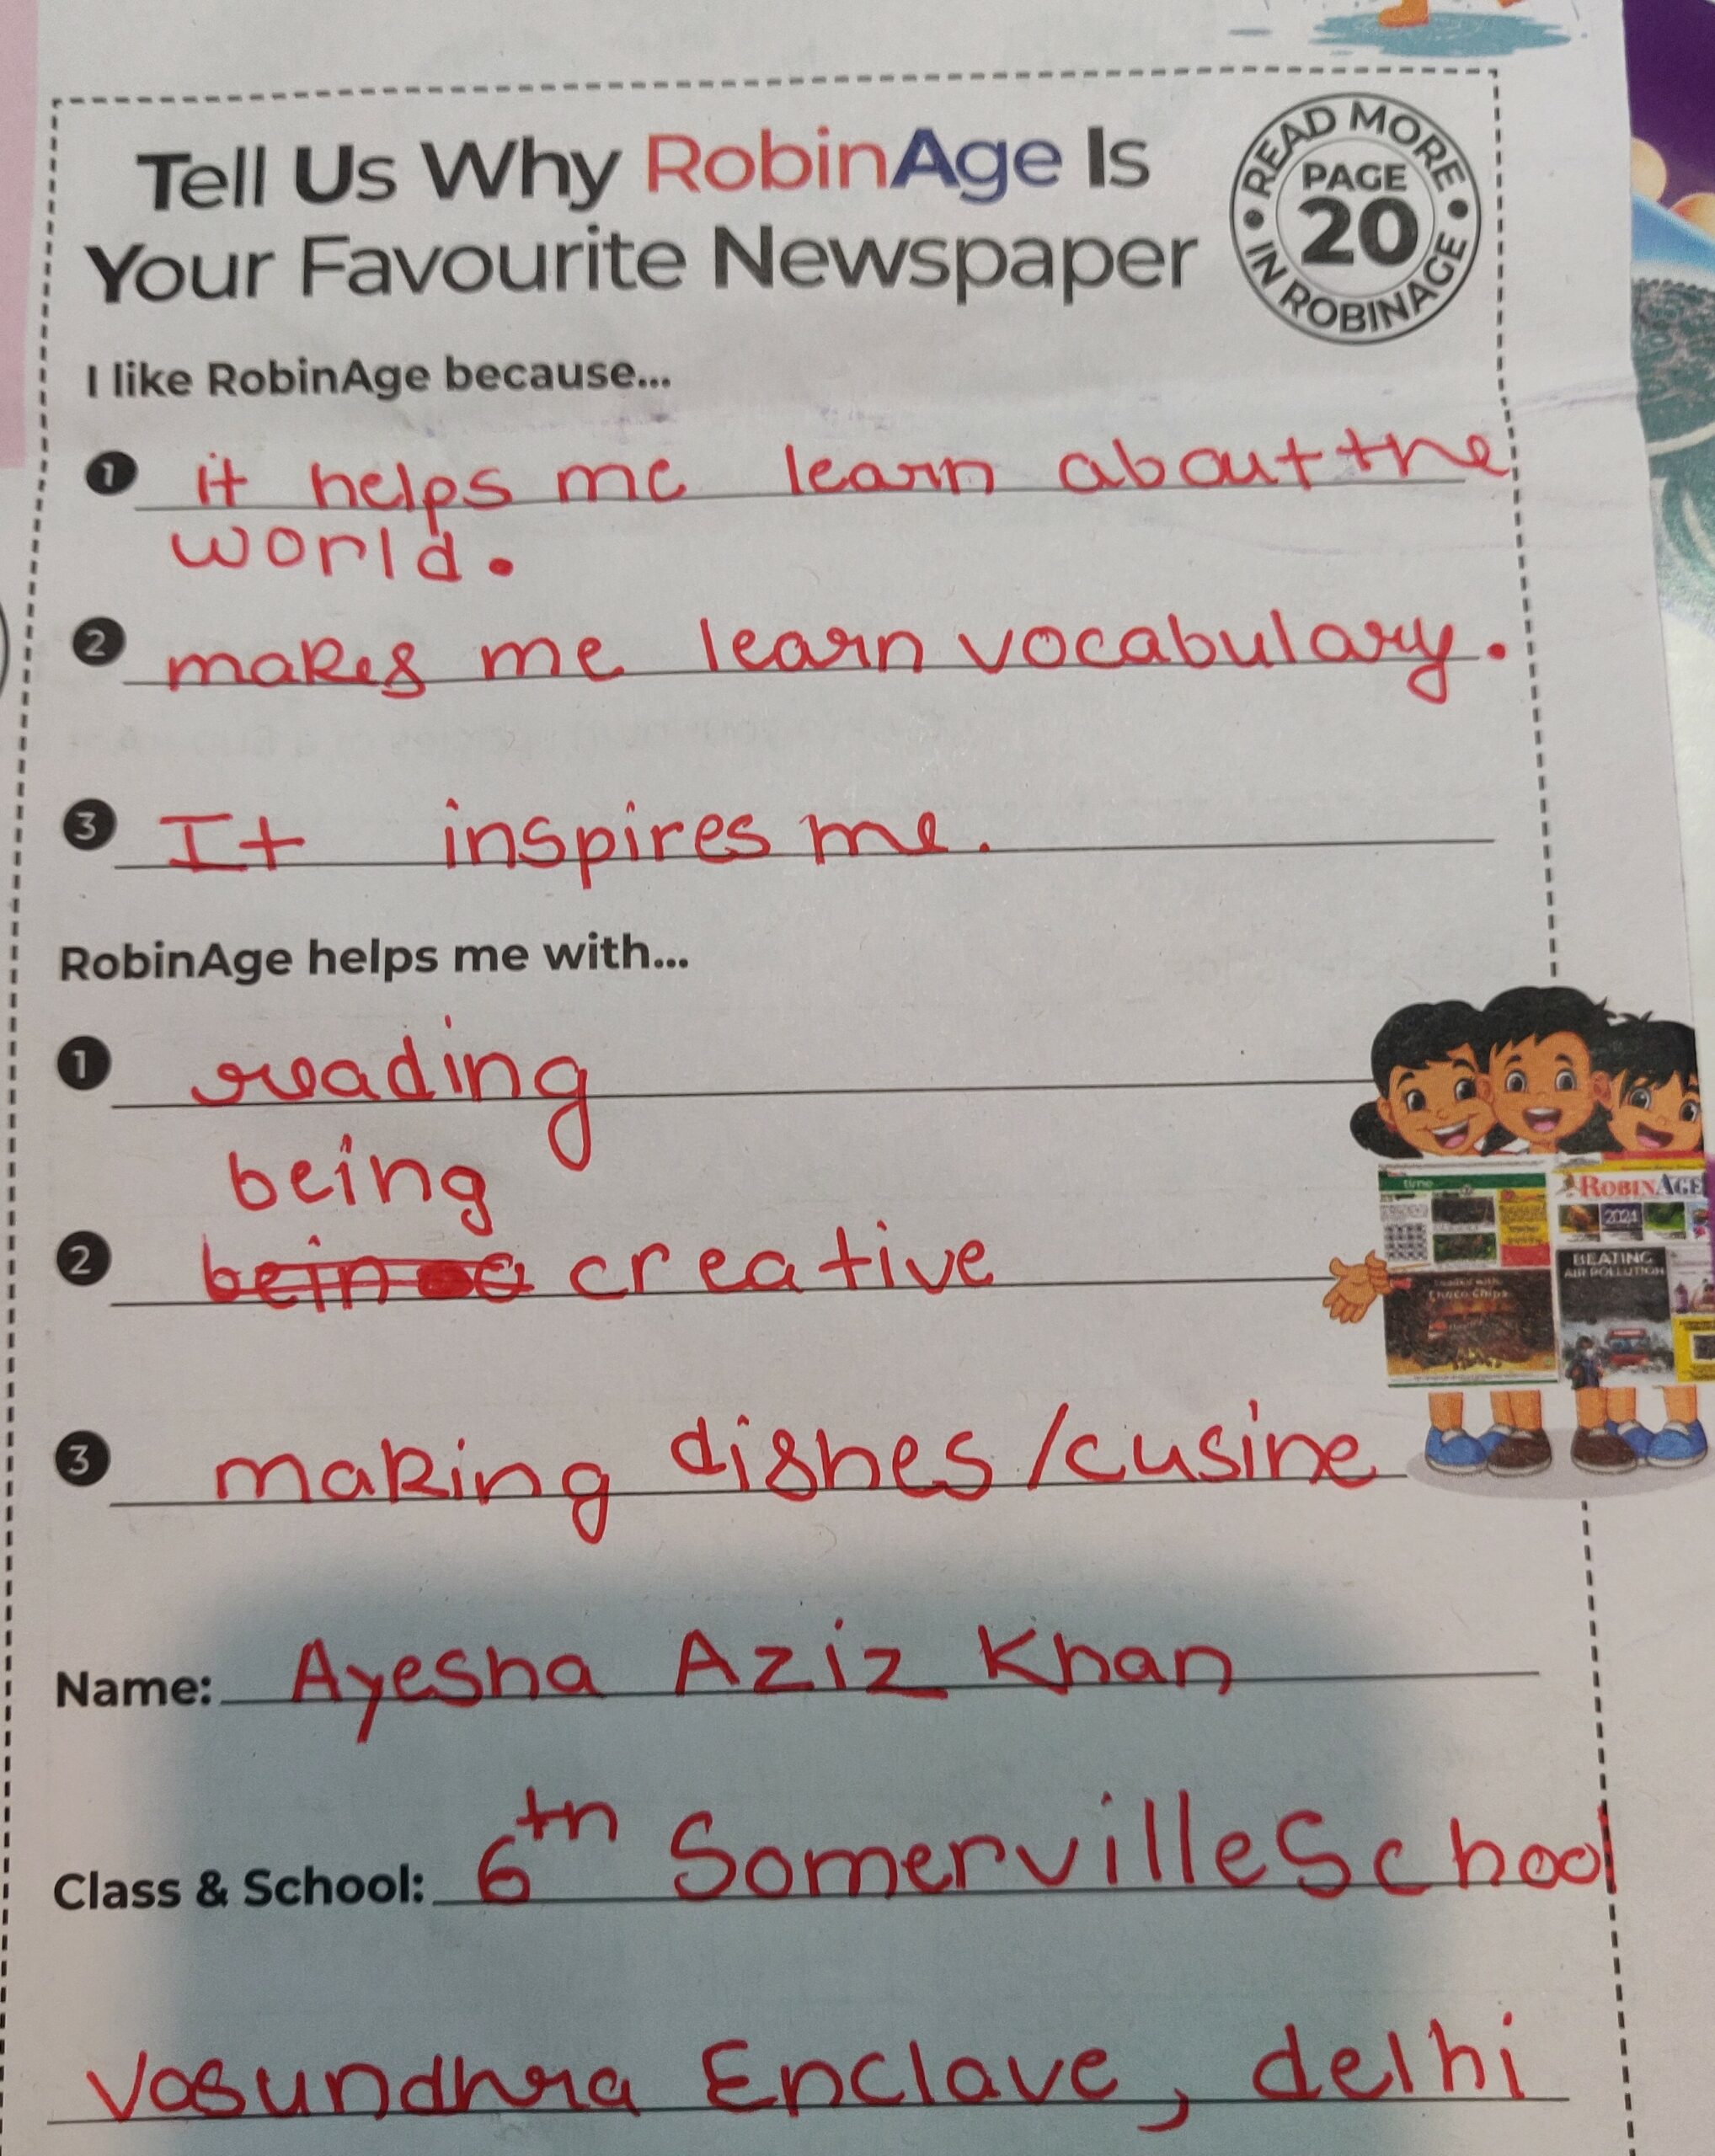 Tell Us Why RobinAge Is
Your Favourite Newspaper
READ MORE
PAGE
20
IN ROBINAGE
I like RobinAge because...
1 it helps me learn about the
world.
2 makes me learn vocabulary.
3 It inspires me.
RobinAge helps me with...
1 reading
being
2 creative
3 making dishes/cusine
time
ROBINAGE
2024
BEATING
AIR POLLUTION
Loaded with
Choco Chips
Name: Ayesha Aziz Khan
Class & School: 6th Somerville School
Vasundhra Enclave, delhi